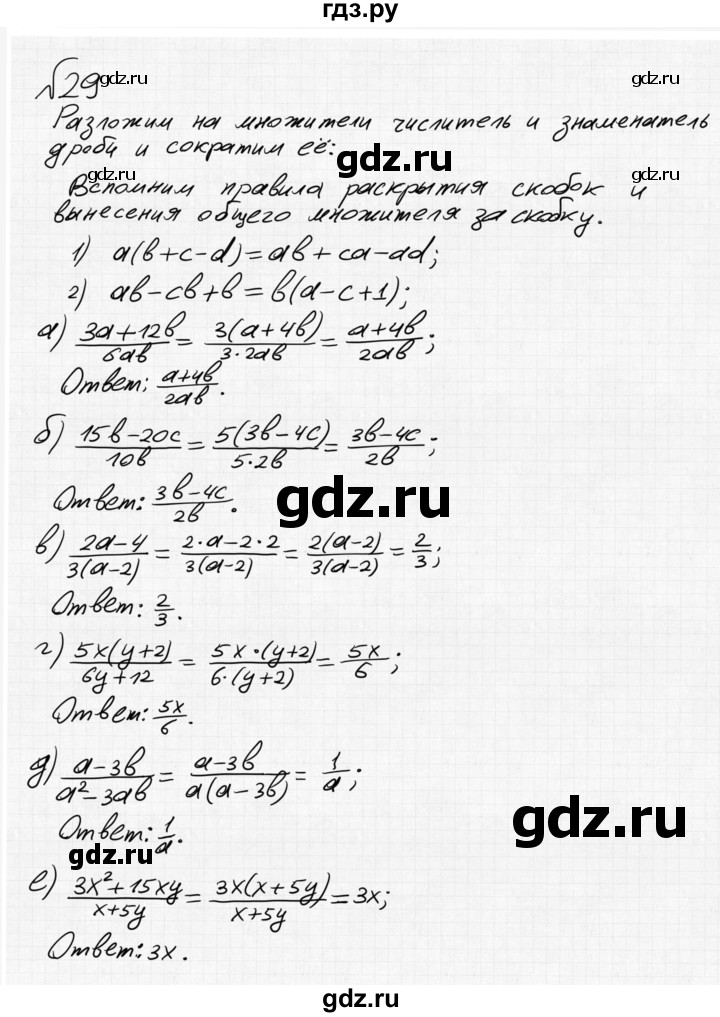 гдз.ру
√29 gdz.ru gdz.ru
Разложим на множители числитель и знаменатель
дроби и сократим её: gdz.ru
gdz.ru gdz.ru
Вспомним правила раскрытия скобок и
вынесения общего множителя за скобку.
1) a(b+c-d)=ab+ca-ad;
2) ab-cb+b=b(a-c+1);
а) (3a+12b)/(6ab) = (3(a+4b))/(3·2ab) = (a+4b)/(2ab);
Ответ: (a+4b)/(2ab).
б) (15b-20c)/(10b) = (5(3b-4c))/(5·2b) = (3b-4c)/(2b);
Ответ: (3b-4c)/(2b).
gdz.ru
в) (2a-4)/(3(a-2)) = (2·a-2·2)/(3(a-2)) = (2(a-2))/(3(a-2)) = 2/3;
Ответ: 2/3.
г) (5x(y+2))/(6y+12) = (5x·(y+2))/(6·(y+2)) = 5x/6;
Ответ: 5x/6.
д) (a-3b)/(a²-3ab) = (a-3b)/(a(a-3b)) = 1/a;
Ответ: 1/a.
gdz.ru
gdz.ru
е) (3x²+15xy)/(x+5y) = (3x(x+5y))/(x+5y) = 3x;
Ответ: 3x.
gdz.ru